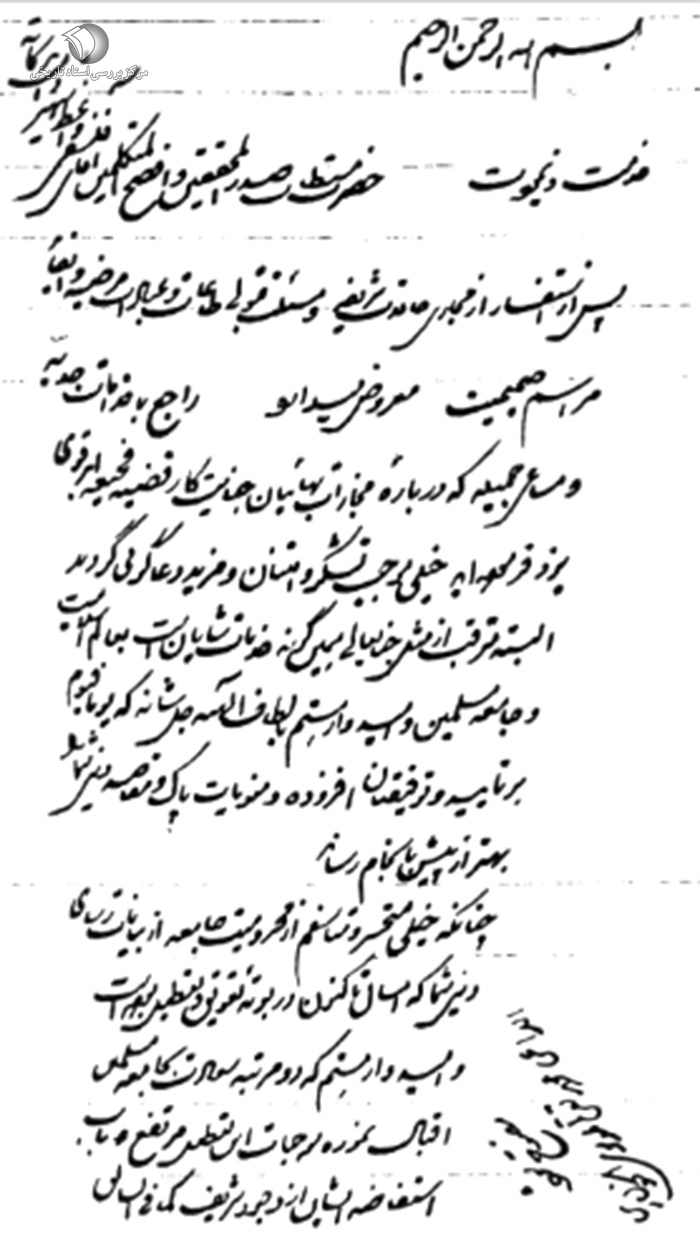 بسم الله الرحمن الرحیم
مرکز بررسی اسناد تاریخی
خدمت ذیجودت حضرت مستطاب صدر المحققین و افصح المتکلمین آقای فلسفی واعظ شهیر
پس از استفسار از مجاری حالات شریفی و مسئلت قبولی طاعات و عبادات مرضیه و ابقاء
مراسم صمیمیت معروض میدارد راجع بخدمات جدیه
و مساعی جمیله که درباره مجازات بهائیان جنایت کار قضیه فجیعه ابرقوی
یزد فرموده اید خیلی موجب تشکر و امتنان و مزید دعاگوئی گردید
البته مترقب از مثل جنابعالی همین گونه خدمات شایان است بعالم اسلامیت
و جامعه مسلمین و امیدوارستم بالطاف اله جل شانه که یوما فیوم
بر تایید و توفیقتان افزوده و منویات پاک و مقاصد دینی شما
بهتر از پیش بانجام رساند
چنانکه خیلی متحسر و متاسفم از محرومیت جامعه از بیانات رسای
دینی شما که امسال تاکنون در بوته تعویق و تعطیل بوده است
و امیدوارستم که دو مرتبه سعادت بجامعه مسلمین
اقبال نموده موجبات این تعطیل مرتفع و باب
استفاضه ایشان از وجود شریف کما فی السابق